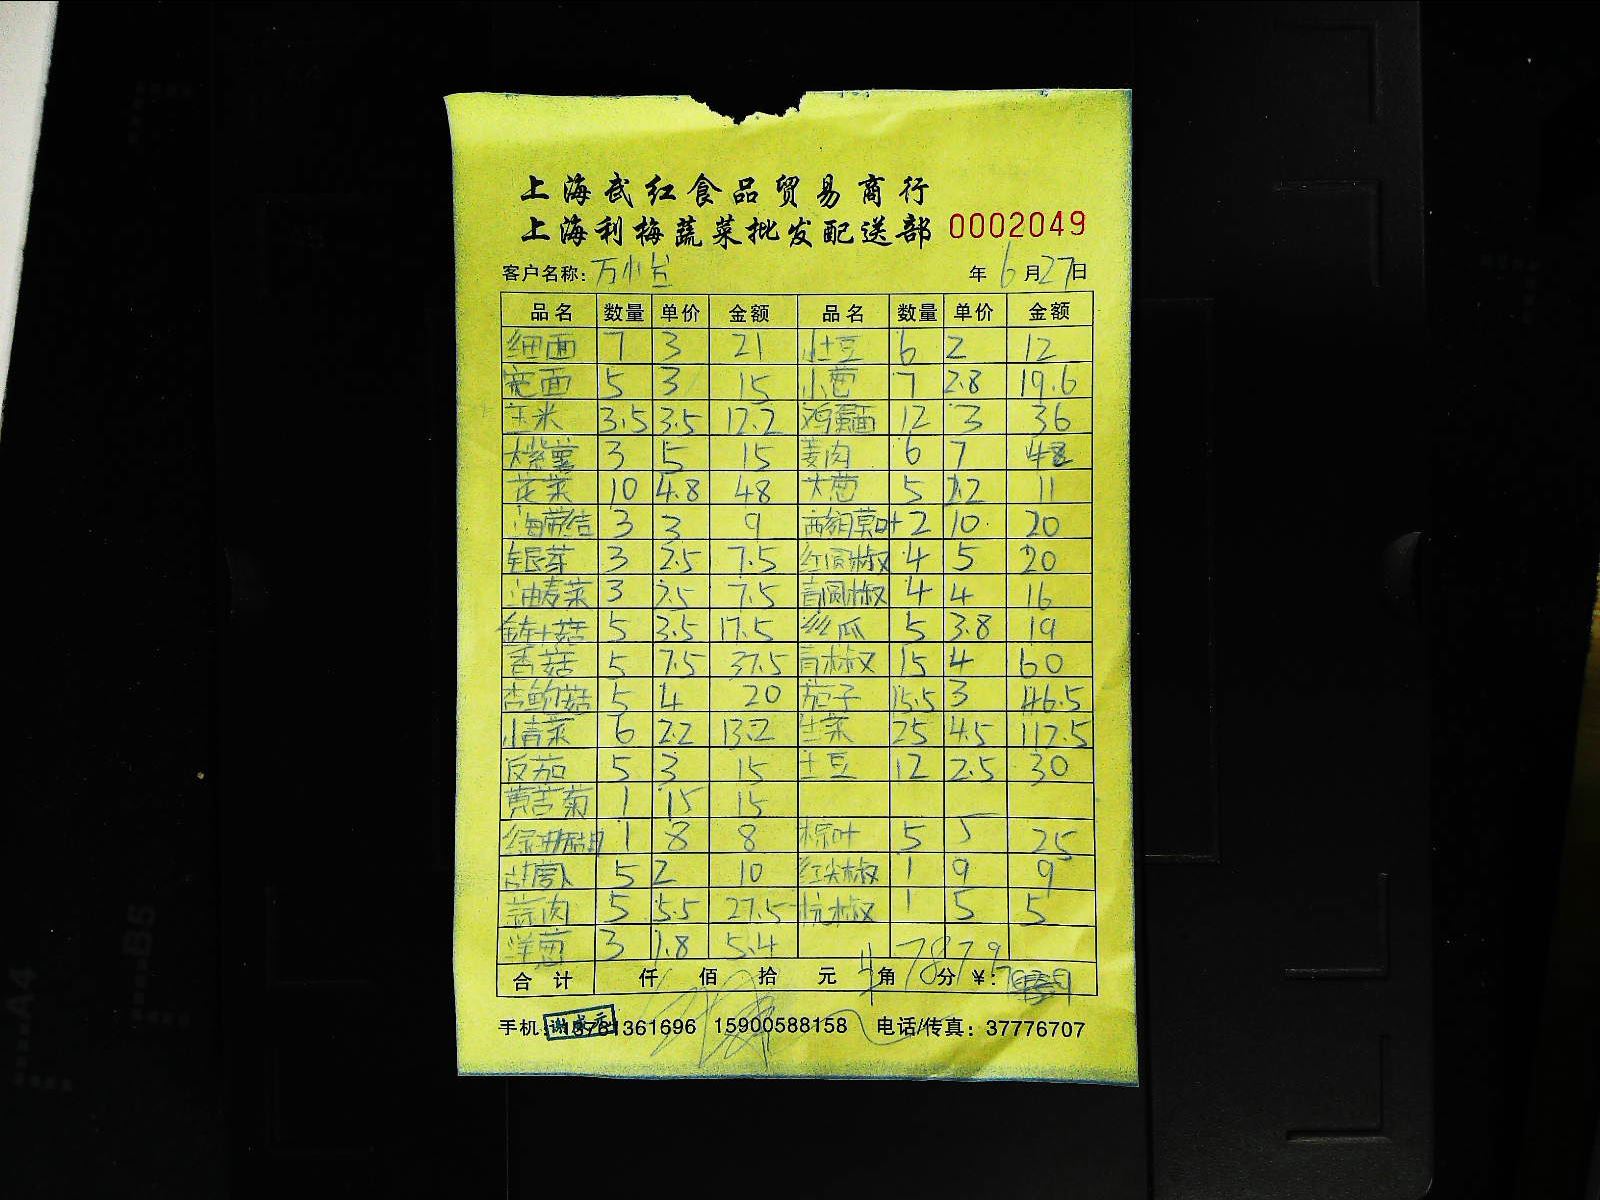 上海武红食品贸易商行
上海利梅蔬菜批发配送部 0002049
客户名称: 万小 年 6月27日
品名 数量 单价 金额 品名 数量 单价 金额
细面 7 3 21 土豆 6 2 12
宽面 5 3 15 小葱 7 2.8 19.6
玉米 3.5 3.5 12.2 鸡蛋面 12 3 36
大紫薯 3 5 15 姜肉 6 7 42
花菜 10 4.8 48 大葱 5 2.2 11
海带结 3 3 9 2 10 20
银芽 3 2.5 7.5 红圆椒 4 5 20
油麦菜 3 2.5 7.5 青圆椒 4 4 16
金针菇 5 3.5 17.5 丝瓜 5 3.8 19
香菇 5 7.5 37.5 青椒 15 4 60
杏鲍菇 5 4 20 茄子 15.5 3 46.5
小青菜 6 2.2 13.2 生菜 25 4.5 112.5
反茄 5 3 15 土豆 12 2.5 30
黄苦菊 1 15 15
1 8 8 棕叶 5 5 25
5 2 10 红尖椒 1 9 9
蒜肉 5 5.5 27.5 杭椒 1 5 5
洋葱 3 1.8 5.4
合计 仟 佰 拾 元 角 分 ¥: 787.9
手机: 361696 15900588158 电话/传真: 37776707